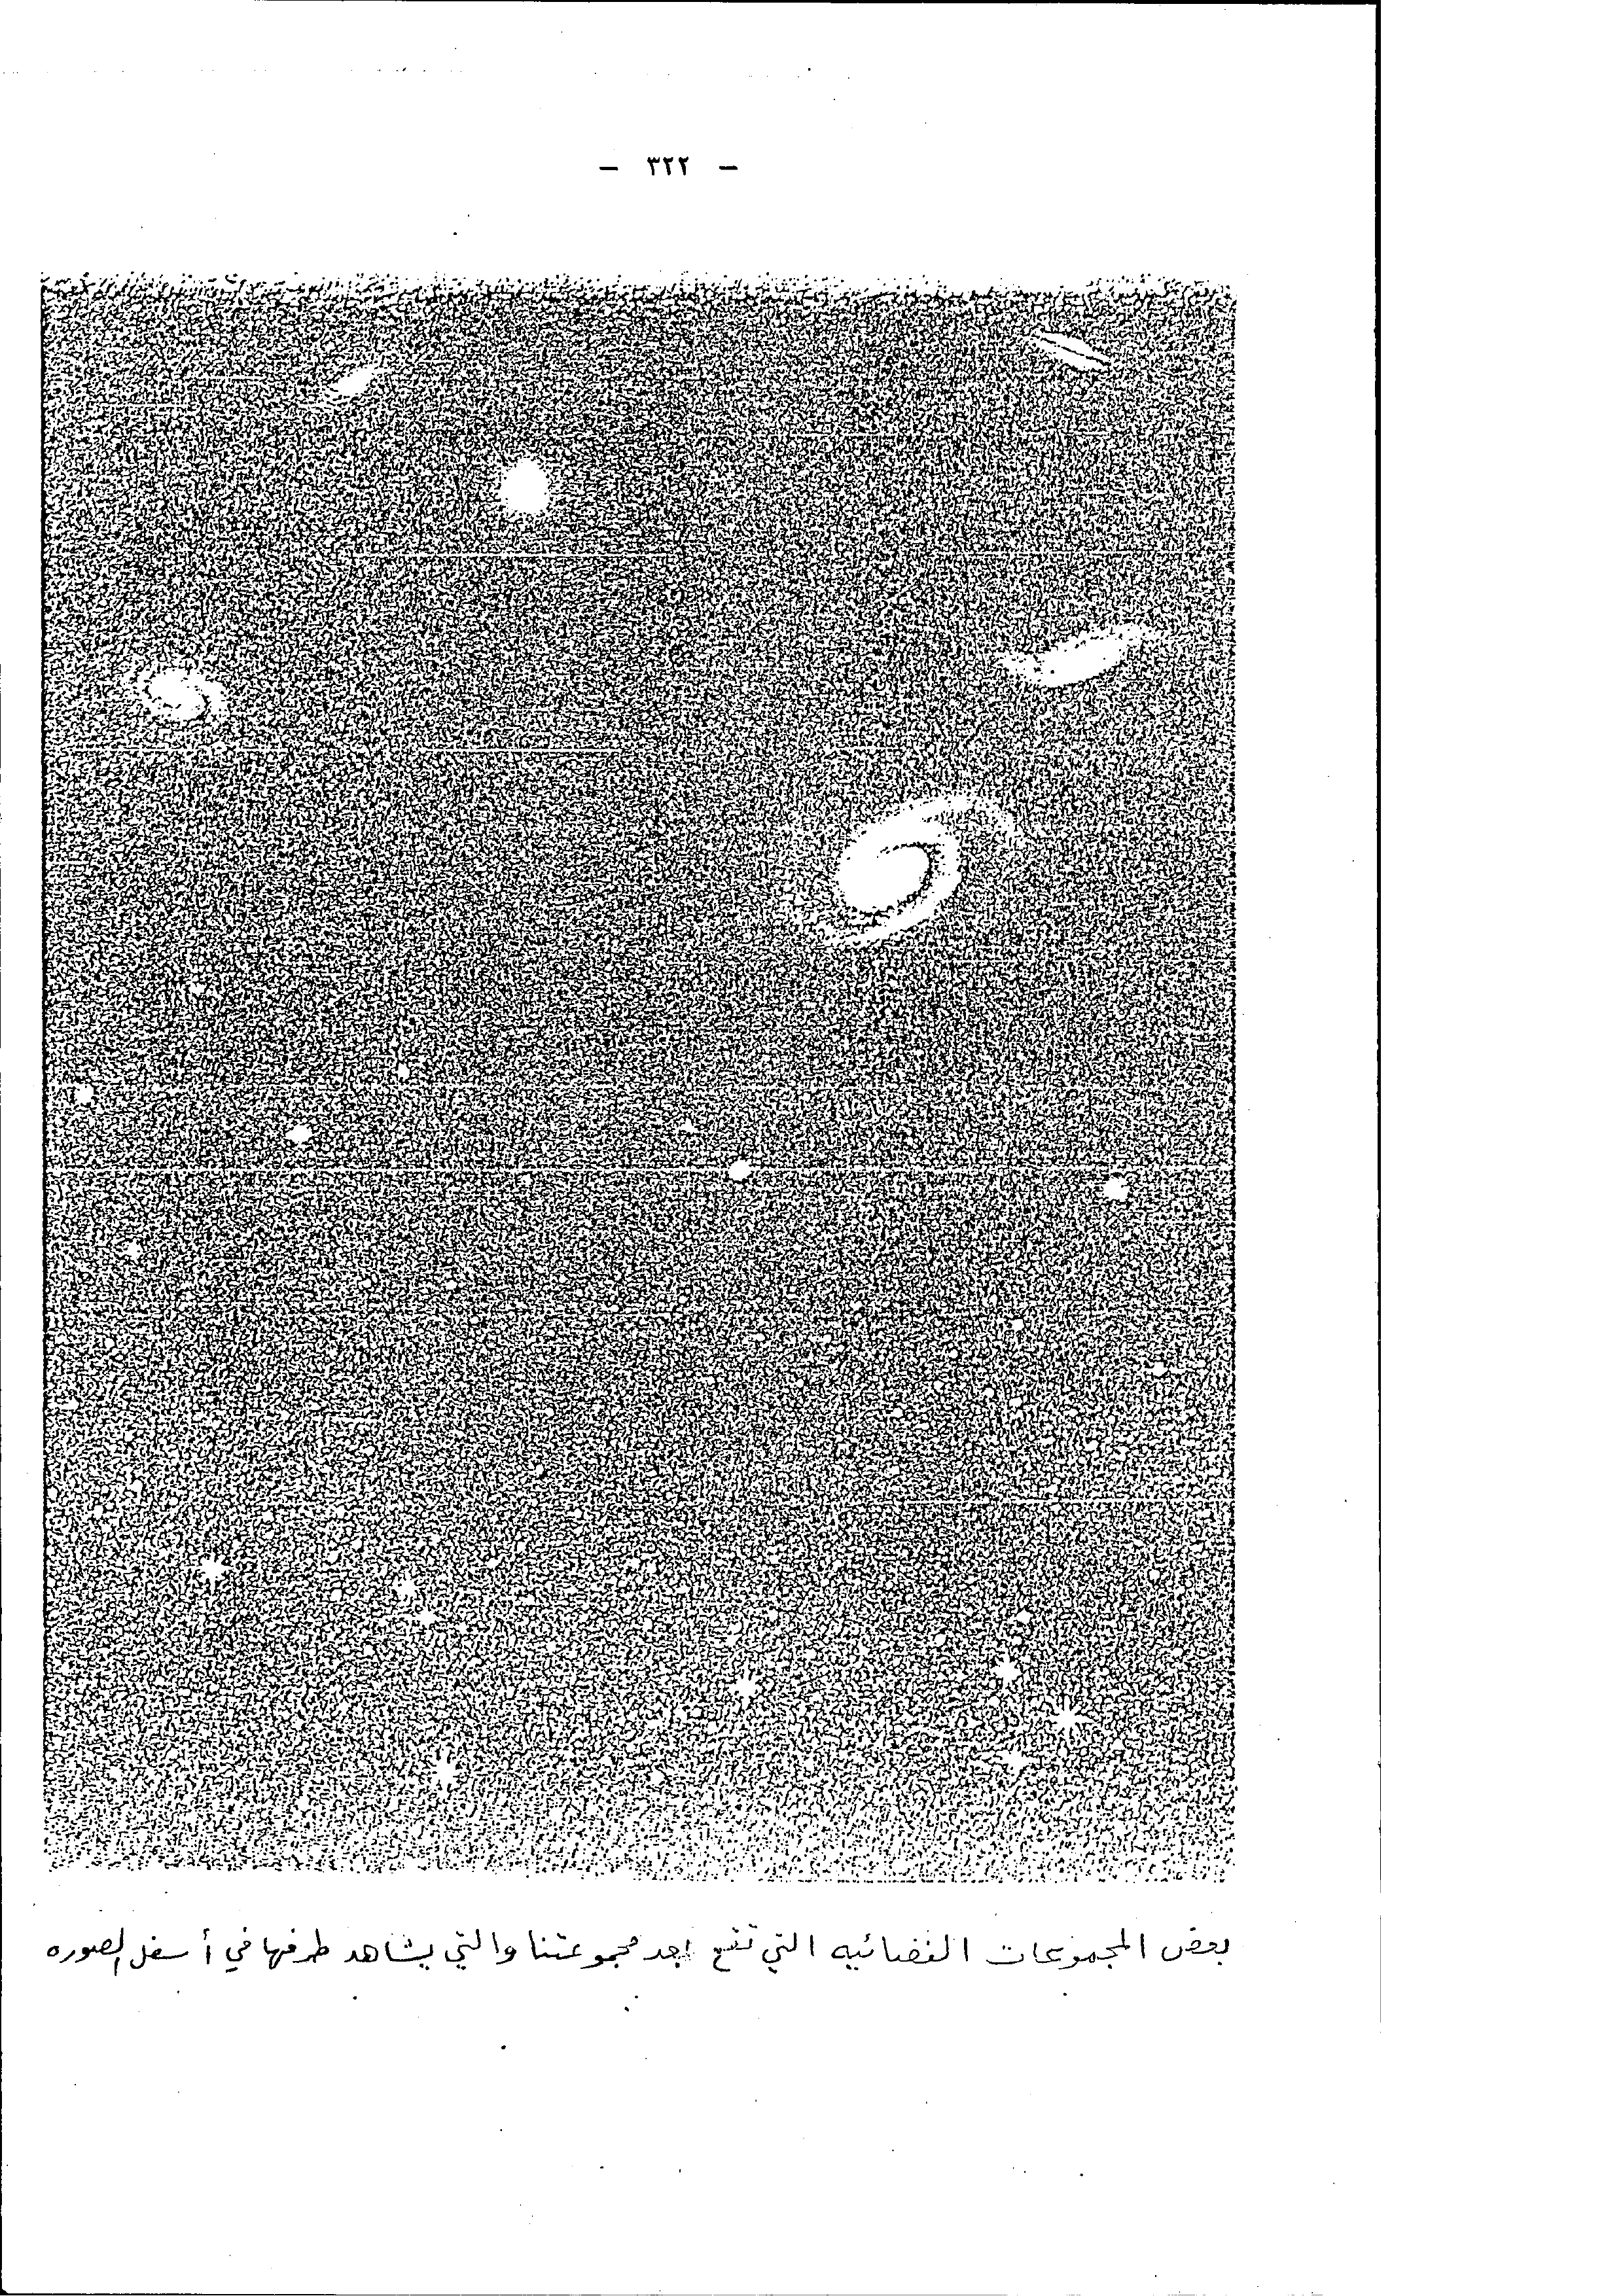 - ٣٢٢ -
بعض المجموعات الفضائيه التي تقع بعد مجموعتنا والتي يشاهد طرفها في أسفل الصوره